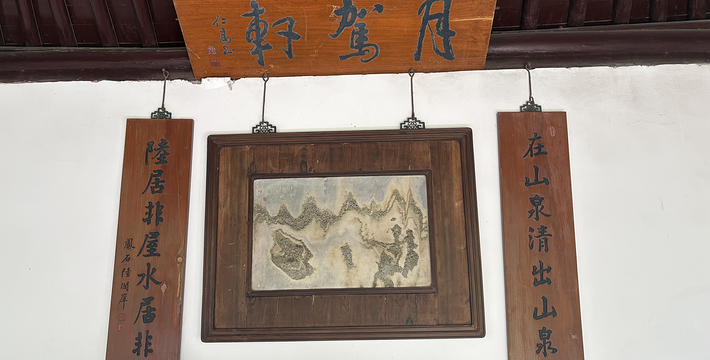 月駕軒
在山泉清出山泉
陸居非屋水居非
鳳石陸潤庠